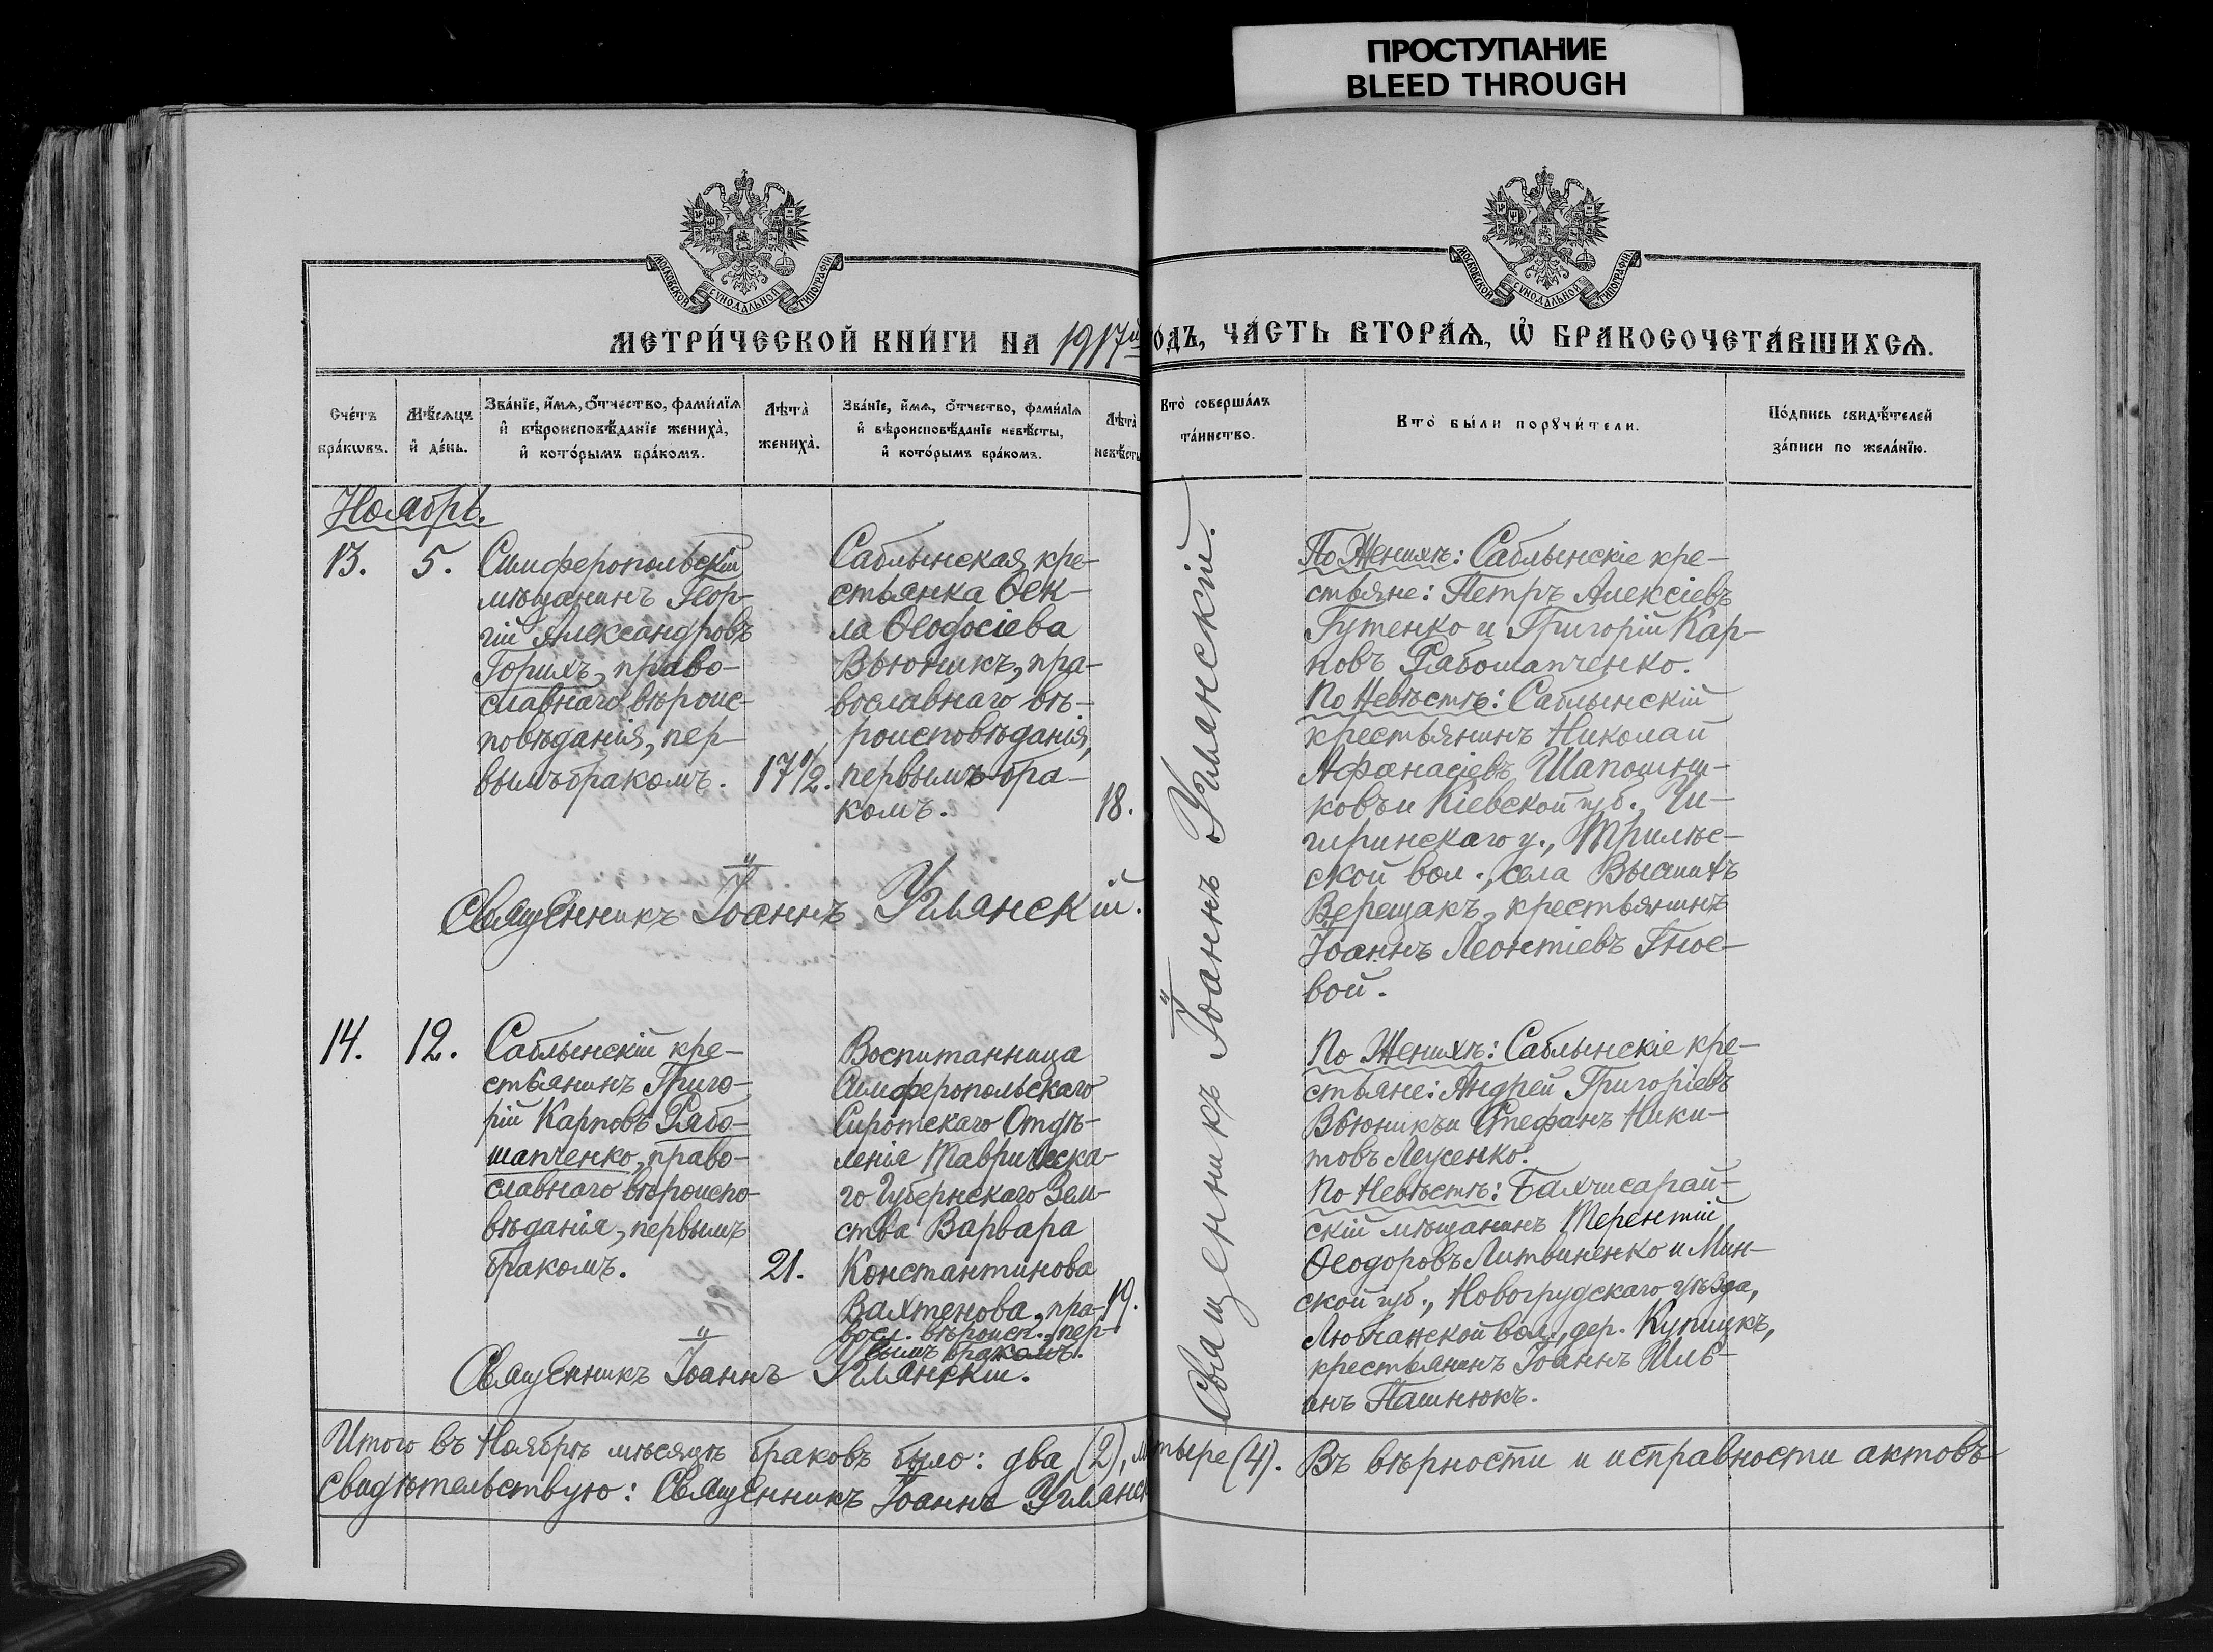 ПРОСТУПАНИЕ
BLEED THROUGH
МОСКОВСКОЙ СУНОДАЛЬНОЙ ТИПОГРАФІИ
МОСКОВСКОЙ СУНОДАЛЬНОЙ ТИПОГРАФІИ
МЕТРИЧЕСКОЙ КНИГИ НА 1917й
ОДЪ, ЧАСТЬ ВТОРАѦ, Ѡ БРАКОСОЧЕТАВШИХСѦ.
Счетъ
браковъ.
Мѣсѧцъ
и день.
Званіе, имѧ, отчество, фамиліѧ
и вѣроисповѣданіе жениха,
и которымъ бракомъ.
Лѣта
жениха.
Званіе, имѧ, отчество, фамиліѧ
и вѣроисповѣданіе невѣсты,
и которымъ бракомъ.
Лѣта
невѣсты
Кто совершалъ
таинство.
Кто были поручители.
Подпись свидѣтелей
записи по желанію.
Ноябрь.
13.
5.
Симферопольскій
мѣщанинъ Геор-
гій Александровъ
Горихъ, право-
славнаго вѣроис-
повѣданія, пер-
вымъ бракомъ.
17 1/2.
Саблынская кре-
стьянка Ѳек-
ла Ѳеодосіева
Вьюникъ, пра-
вославнаго вѣ-
роисповѣданія,
первымъ бра-
комъ.
18.
Священникъ Іоаннъ Углянскій.
По Женихѣ: Саблынскіе кре-
стьяне: Петръ Алексіевъ
Гутенко и Григорій Кар-
повъ Рябошапченко.
По Невѣстѣ: Саблынскій
крестьянинъ Николай
Афанасіевъ Шапошни-
ковъ и Кіевской губ., Чи-
гиринскаго у., Трилѣс-
ской вол., села Высшихъ
Верещакъ, крестьянинъ
Іоаннъ Леонтіевъ Гное-
вой.
Священникъ Іоаннъ Углянскій.
14.
12.
Саблынскій кре-
стьянинъ Григо-
рій Карповъ Рябо-
шапченко, право-
славнаго вѣроиспо-
вѣданія, первымъ
бракомъ.
21.
Воспитанница
Симферопольскаго
Сиротскаго Отдѣ-
ленія Тавричеcка-
го Губернскаго Зем-
ства Варвара
Константинова
Вахтенова, пра-
восл. вѣроисп., пер-
вымъ бракомъ.
19.
Священникъ Іоаннъ Углянскій.
По Женихѣ: Саблынскіе кре-
стьяне: Андрей Григоріевъ
Вьюникъ и Стефанъ Ники-
товъ
По Невѣстѣ: Бахчисарай-
скій мѣщанинъ Терентій
Ѳеодоровъ Литвиненко и Мин-
ской губ., Новогрудскаго уѣзда,
Любчанской вол., дер. Купискъ,
крестьянинъ Іоаннъ Иль-
инъ Пашнюкъ.
Итого въ Ноябрѣ мѣсяцѣ браковъ было: два (2), четыре (4). Въ вѣрности и исправности актовъ
свидѣтельствую: Священникъ Іоаннъ Углянск